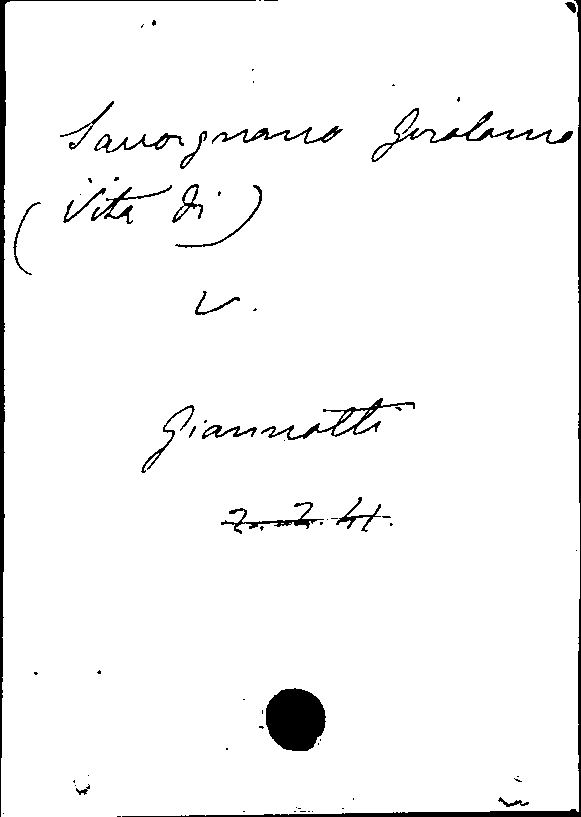 Savorgnano Girolamo
(Vita di)
V.
Giannotti
2. 2. 41.